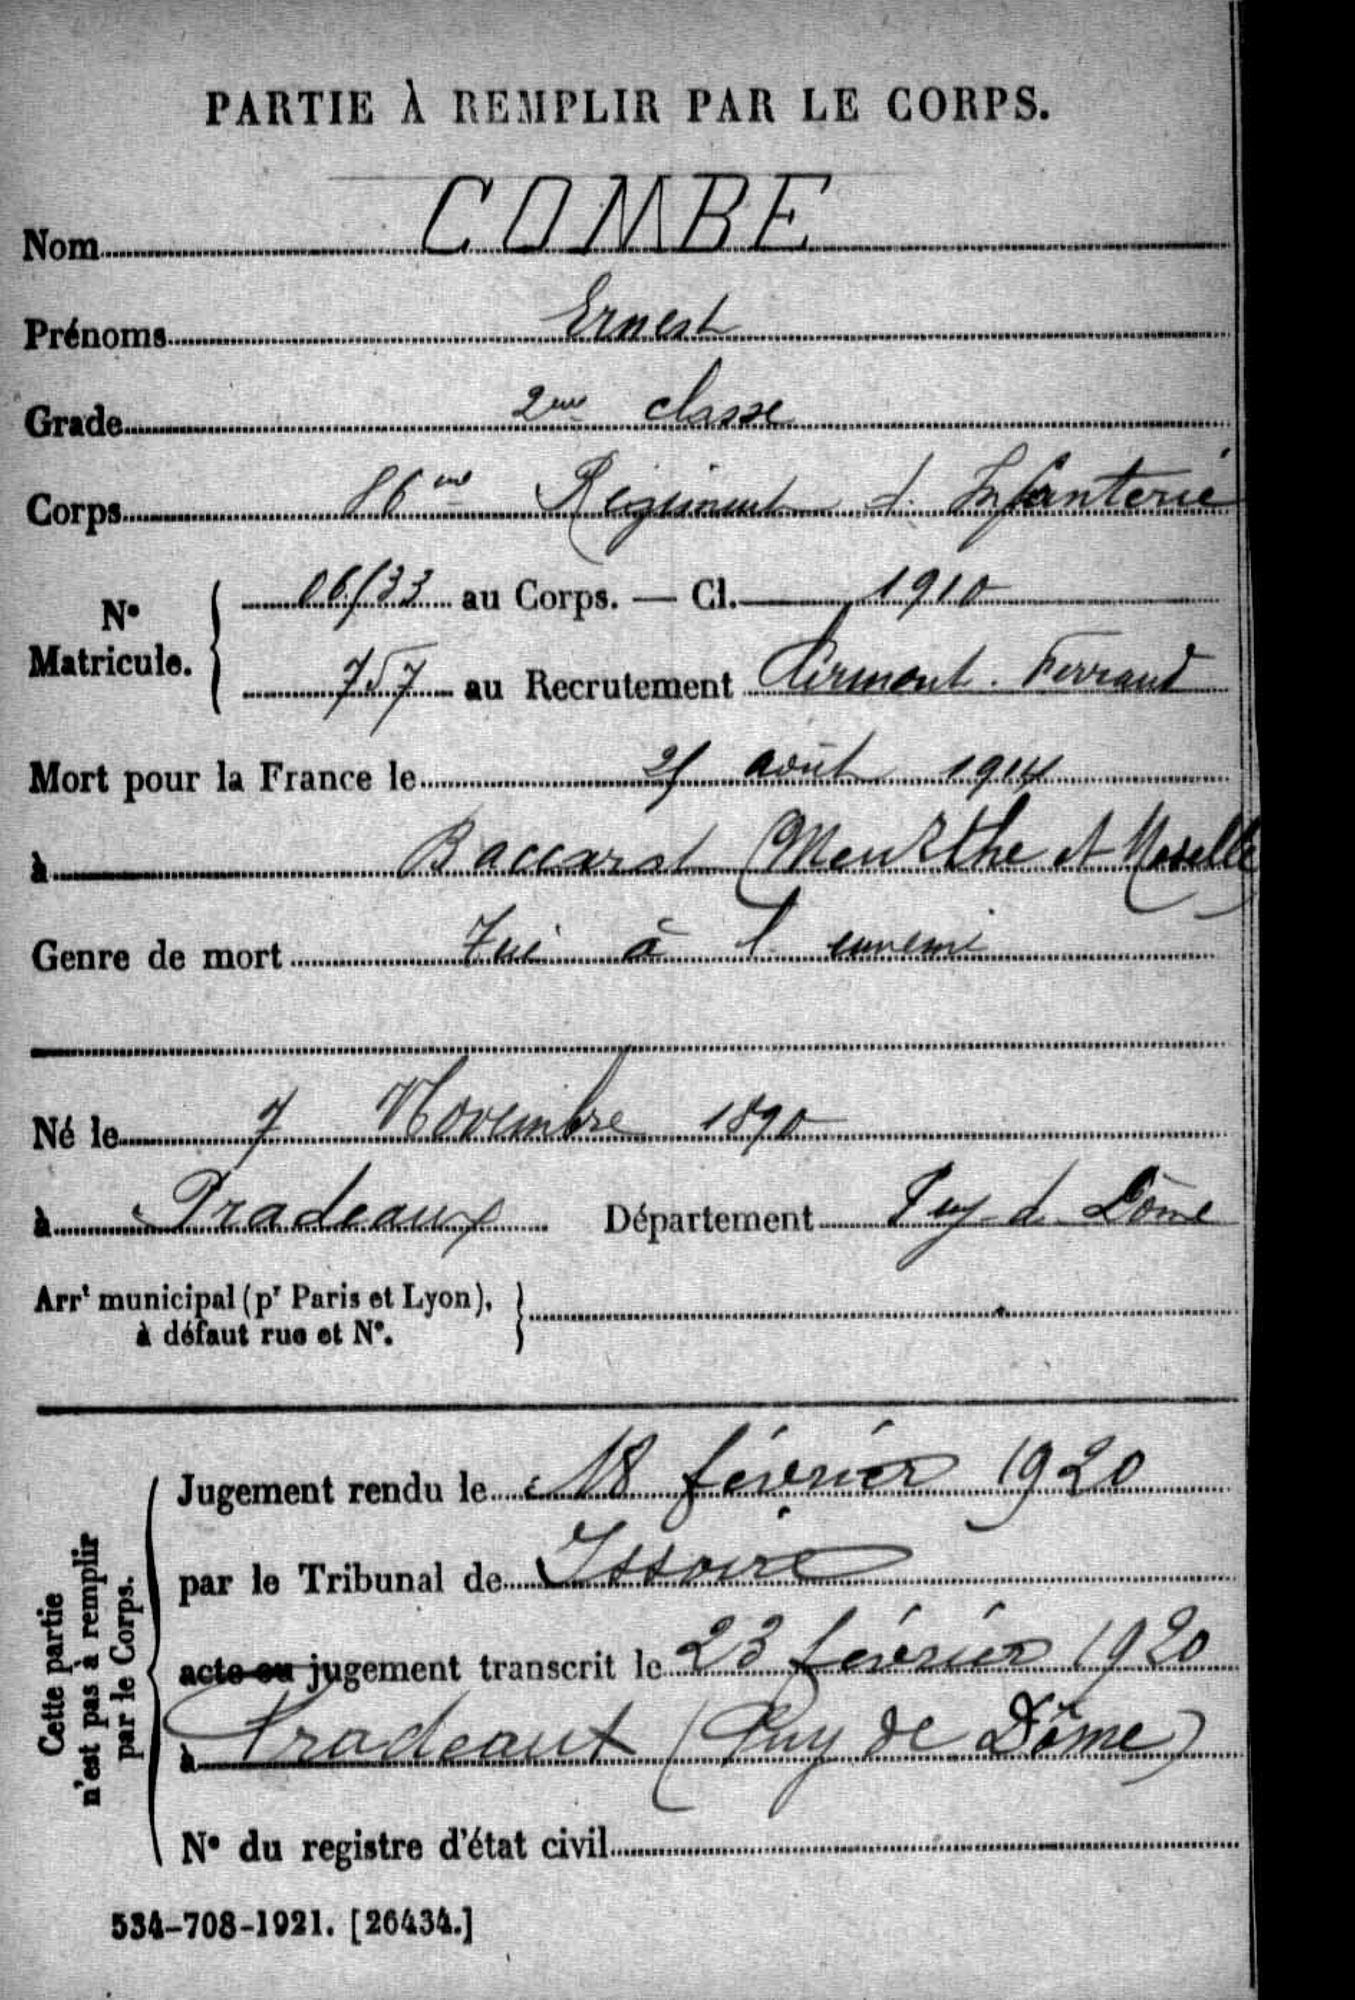 PARTIE À REMPLIR PAR LE CORPS.
Nom COMBE
Prénoms Ernest
Grade 2me classe
Corps 86me Régiment d'Infanterie
N° Matricule. { 06133 au Corps. — Cl. 1910
757 au Recrutement Clermont-Ferrand
Mort pour la France le 25 août 1914
à Baccarat (Meurthe et Moselle)
Genre de mort Tué à l'ennemi
Né le 7 Novembre 1890
à Pradeaux Département Puy de Dôme
Arrt municipal (pr Paris et Lyon), }
à défaut rue et N°.
Cette partie
n'est pas à remplir
par le Corps.
Jugement rendu le 18 février 1920
par le Tribunal de Issoire
acte ou jugement transcrit le 23 février 1920
à Pradeaux (Puy de Dôme)
N° du registre d'état civil
534-708-1921. [26434.]